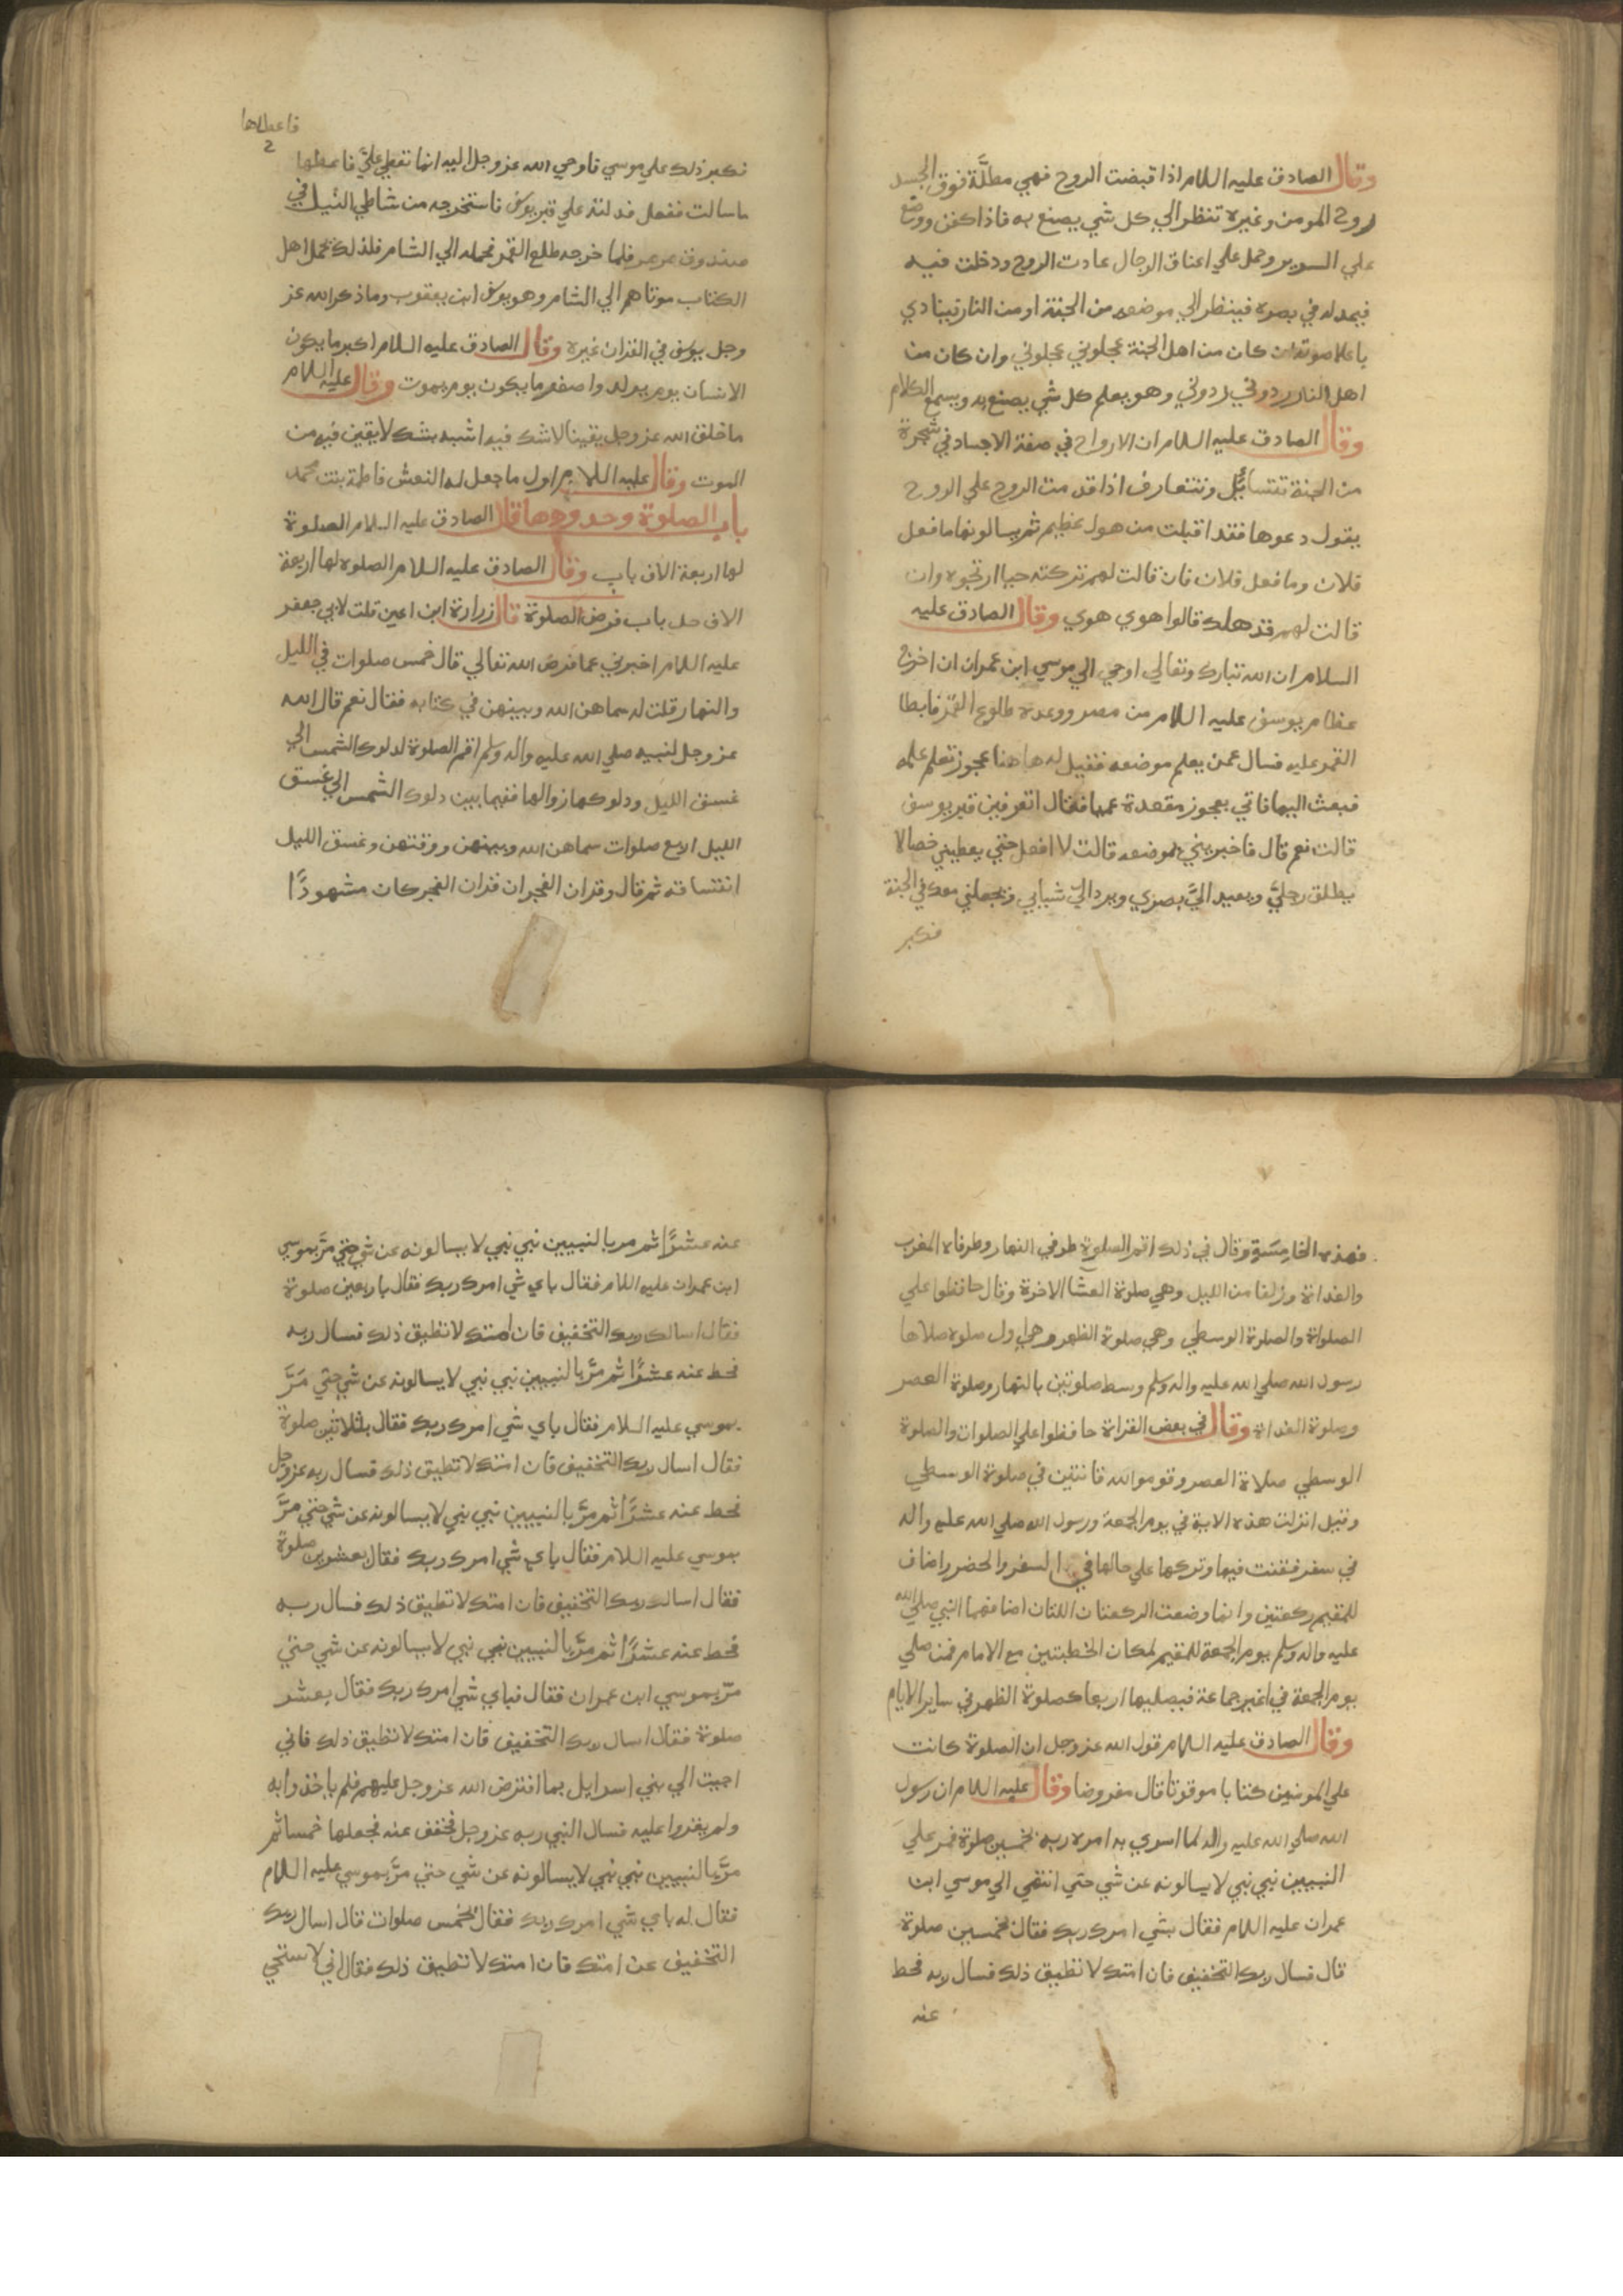 وقال الصادق عليه السلام اذا قبضت الروح فهي مطلَّة فوق الجسد
روح المومن وغيره تنظر الي كل شي يصنع به فاذا كفن ووضع
علي السرير وحمل علي اعناق الرجال عادت الروح ودخلت فيه
فيمد له في بصره فينظر الي موضعه من الجنة او من النار فينادي
باعلا صوته ان كان من اهل الجنة عجلوني عجلوني وان كان من
اهل النار ردوني ردوني وهو يعلم كل شي يصنع به ويسمع الكلام
وقال الصادق عليه السلام ان الارواح في صفة الاجساد في شجرة
من الجنة تتسائل وتتعارف اذا قدمت الروح علي الروح
يقول دعوها فقد اقبلت من هول عظيم ثم يسالونها ما فعل
فلان وما فعل فلان فان قالت لهم تركته حيا ارتجوه وان
قالت لهم قد هلك قالوا هوي هوي وقال الصادق عليه
السلام ان الله تبارك وتعالي اوحي الي موسي ابن عمران ان اخرج
عظام يوسف عليه السلام من مصر ووعده طلوع القمر فابطا
القمر عليه فسال عمن يعلم موضعه فقيل له هاهنا عجوز تعلم علمه
فبعث اليها فاتي بعجوز مقعدة عميا فقال اتعرفين قبر يوسف
قالت نعم قال فاخبريني بموضعه قالت لا افعل حتي يعطيني خصالا
يطلق رجليَّ ويعيد اليَّ بصري ويرد اليَّ شبابي وتجعلني معك في الجنة
فكبر
فاعطاها
فكبر ذلك علي موسي فاوحي الله عز وجل اليه انما تعطي عليَّ فاعطها
ما سالت ففعل فدلته علي قبر يوسف فاستخرجه من شاطي النيل في
صندوق مرمر فلما خرجه طلع القمر فحمله الي الشام فلذلك تحمل اهل
الكتاب موتاهم الي الشام وهو يوسف ابن يعقوب وما ذكر الله عز
وجل يوسف في القران غيره وقال الصادق عليه السلام اكبر ما يكون
الانسان يوم يولد واصغر ما يكون يوم يموت وقال عليه السلام
ما خلق الله عز وجل يقينا لا شك فيه اشبه بشك لا يقين فيه من
الموت وقال عليه السلام اول ما جعل له النعش فاطمة بنت محمد
باب الصلوة وحدودها قال الصادق عليه السلام الصلوة
لها اربعة الاف باب وقال الصادق عليه السلام الصلوة لها اربعة
الاف حد باب فرض الصلوة قال زرارة ابن اعين قلت لابي جعفر
عليه السلام اخبرني عما فرض الله تعالي قال خمس صلوات في الليل
والنهار قلت له سماهن الله وبينهن في كتابه فقال نعم قال الله
عز وجل لنبيه صلي الله عليه واله وسلم اقم الصلوة لدلوك الشمس الي
غسق الليل ودلوكها زوالها ففيما بين دلوك الشمس الي غسق
الليل اربع صلوات سماهن الله وبينهن ووقتهن وغسق الليل
انتصافه ثم قال وقران الفجر ان قران الفجر كان مشهودًا
فهذه الخامِسَة وقال في ذلك اقم الصلوة طرفي النهار وطرفاه المغرب
والغداة وزلفا من الليل وهي صلوة العشا الاخرة وقال حافظوا علي
الصلواة والصلوة الوسطي وهي صلوة الظهر وهي اول صلوة صلاها
رسول الله صلي الله عليه واله وسلم وسط صلوتين بالنهار وصلوة العصر
وصلوة الغداة وقال في بعض القراة حافظوا علي الصلوات والصلوة
الوسطي صلاة العصر وقوموا لله قانتين في صلوة الوسطي
وقيل انزلت هذه الاية في يوم الجمعة ورسول الله صلي الله عليه واله
في سفر فقنت فيها وتركها علي حالها في السفر والحضر واضاف
للمقيم ركعتين وانما وضعت الركعتان اللتان اضافهما النبي صلي الله
عليه واله وسلم يوم الجمعة للمقيم لمكان الخطبتين مع الامام فمن صلي
يوم الجمعة في غير جماعة فيصليها اربعا كصلوة الظهر في ساير الايام
وقال الصادق عليه السلام قول الله عز وجل ان الصلوة كانت
علي المومنين كتابا موقوتا قال مفروضا وقال عليه السلام ان رسول
الله صلي الله عليه واله لما اسري به امره ربه بخمسين صلوة فمر علي
النبيين نبي نبي لا يسالونه عن شي حتي انتهي الي موسي ابن
عمران عليه السلام فقال بشي امرك ربك فقال بخمسين صلوة
قال فسال ربك التخفيف فان امتك لا تطيق ذلك فسال ربه فحط
عنه
عنه عشرًا ثم مر بالنبيين نبي نبي لا يسالونه عن شي حتي مرَّ بموسي
ابن عمران عليه السلام فقال باي شي امرك ربك فقال باربعين صلوة
فقال اسالك ربك التخفيف فان امتك لا تطيق ذلك فسال ربه
فحط عنه عشرًا ثم مرَّ بالنبيين نبي نبي لا يسالونه عن شي حتي مَرَّ
بموسي عليه السلام فقال باي شي امرك ربك فقال بثلاثين صلوة
فقال اسال ربك التخفيف فان امتك لا تطيق ذلك فسال ربه عز وجل
فحط عنه عشرًا ثم مرَّ بالنبيين نبي نبي لا يسالونه عن شي حتي مرَّ
بموسي عليه السلام فقال باي شي امرك ربك فقال بعشرين صلوة
فقال اسالك ربك التخفيف فان امتك لا تطيق ذلك فسال ربه
فحط عنه عشرًا ثم مرَّ بالنبيين نبي نبي لا يسالونه عن شي حتي
مرّ بموسي ابن عمران فقال فباي شي امرك ربك فقال بعشر
صلوة فقال اسال ربك التخفيف فان امتك لا تطيق ذلك فاني
اجيت الي بني اسرايل بما افترض الله عز وجل عليهم فلم ياخذوا به
ولم يقروا عليه فسال النبي ربه عز وجل فخفف عنه فجعلها خمسا ثم
مرَّ بالنبيين نبي نبي لا يسالونه عن شي حتي مرَّ بموسي عليه السلام
فقال له باي شي امرك ربك فقال بخمس صلوات قال اسال ربك
التخفيف عن امتك فان امتك لا تطيق ذلك فقال اني لاستحي